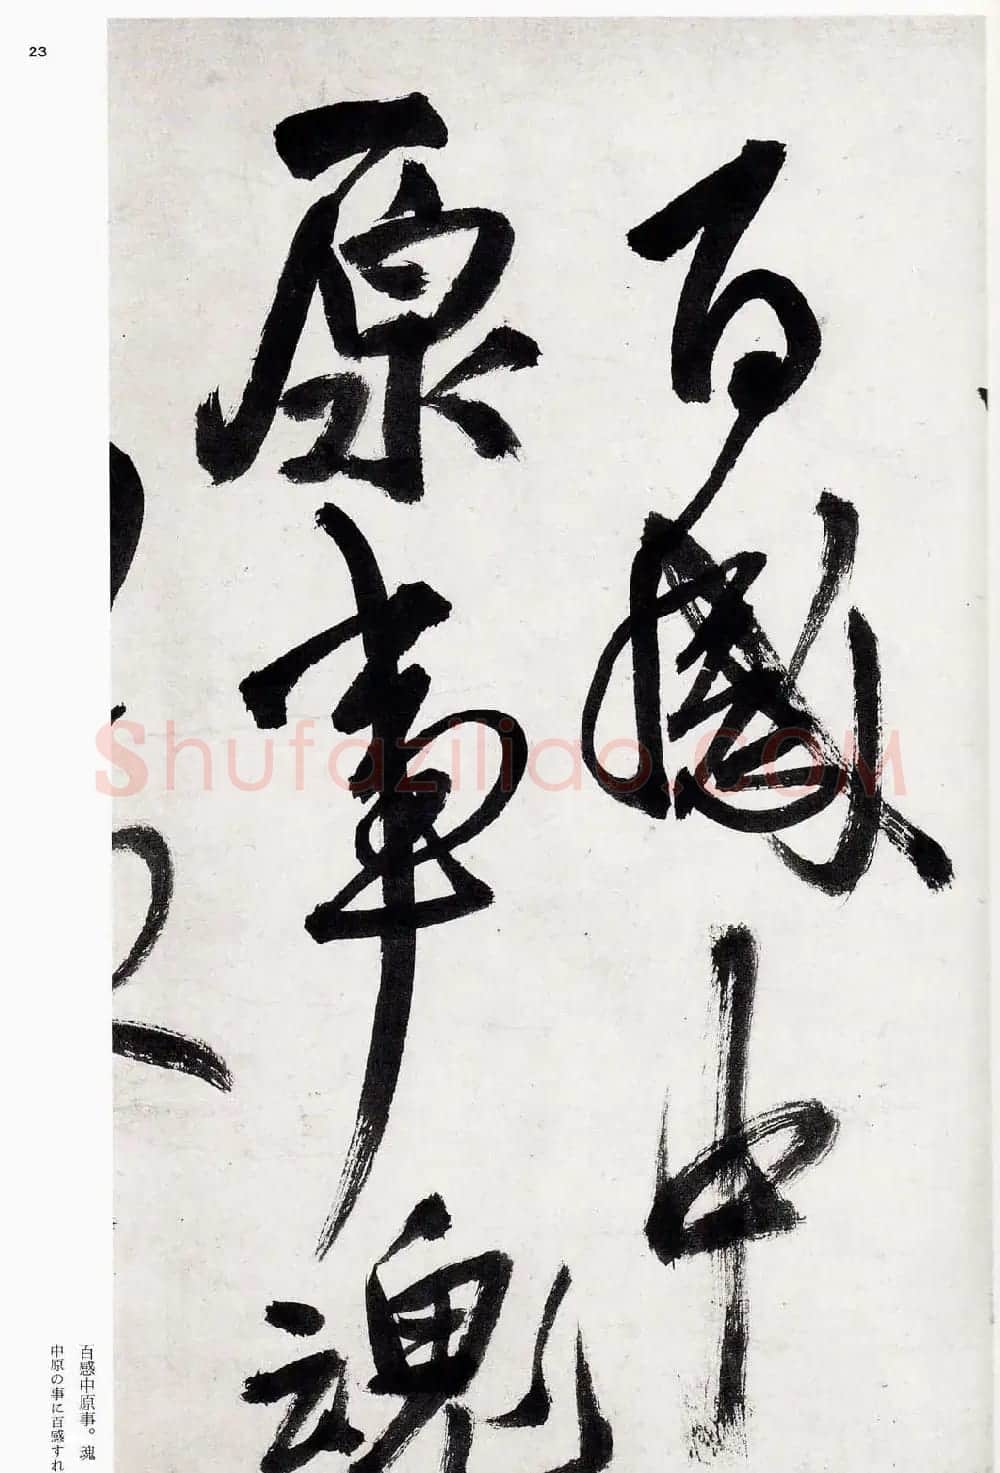 23
百感中
原事魂
百感中原事。魂
中原の事に百感すれ
Shufaziliao.COM